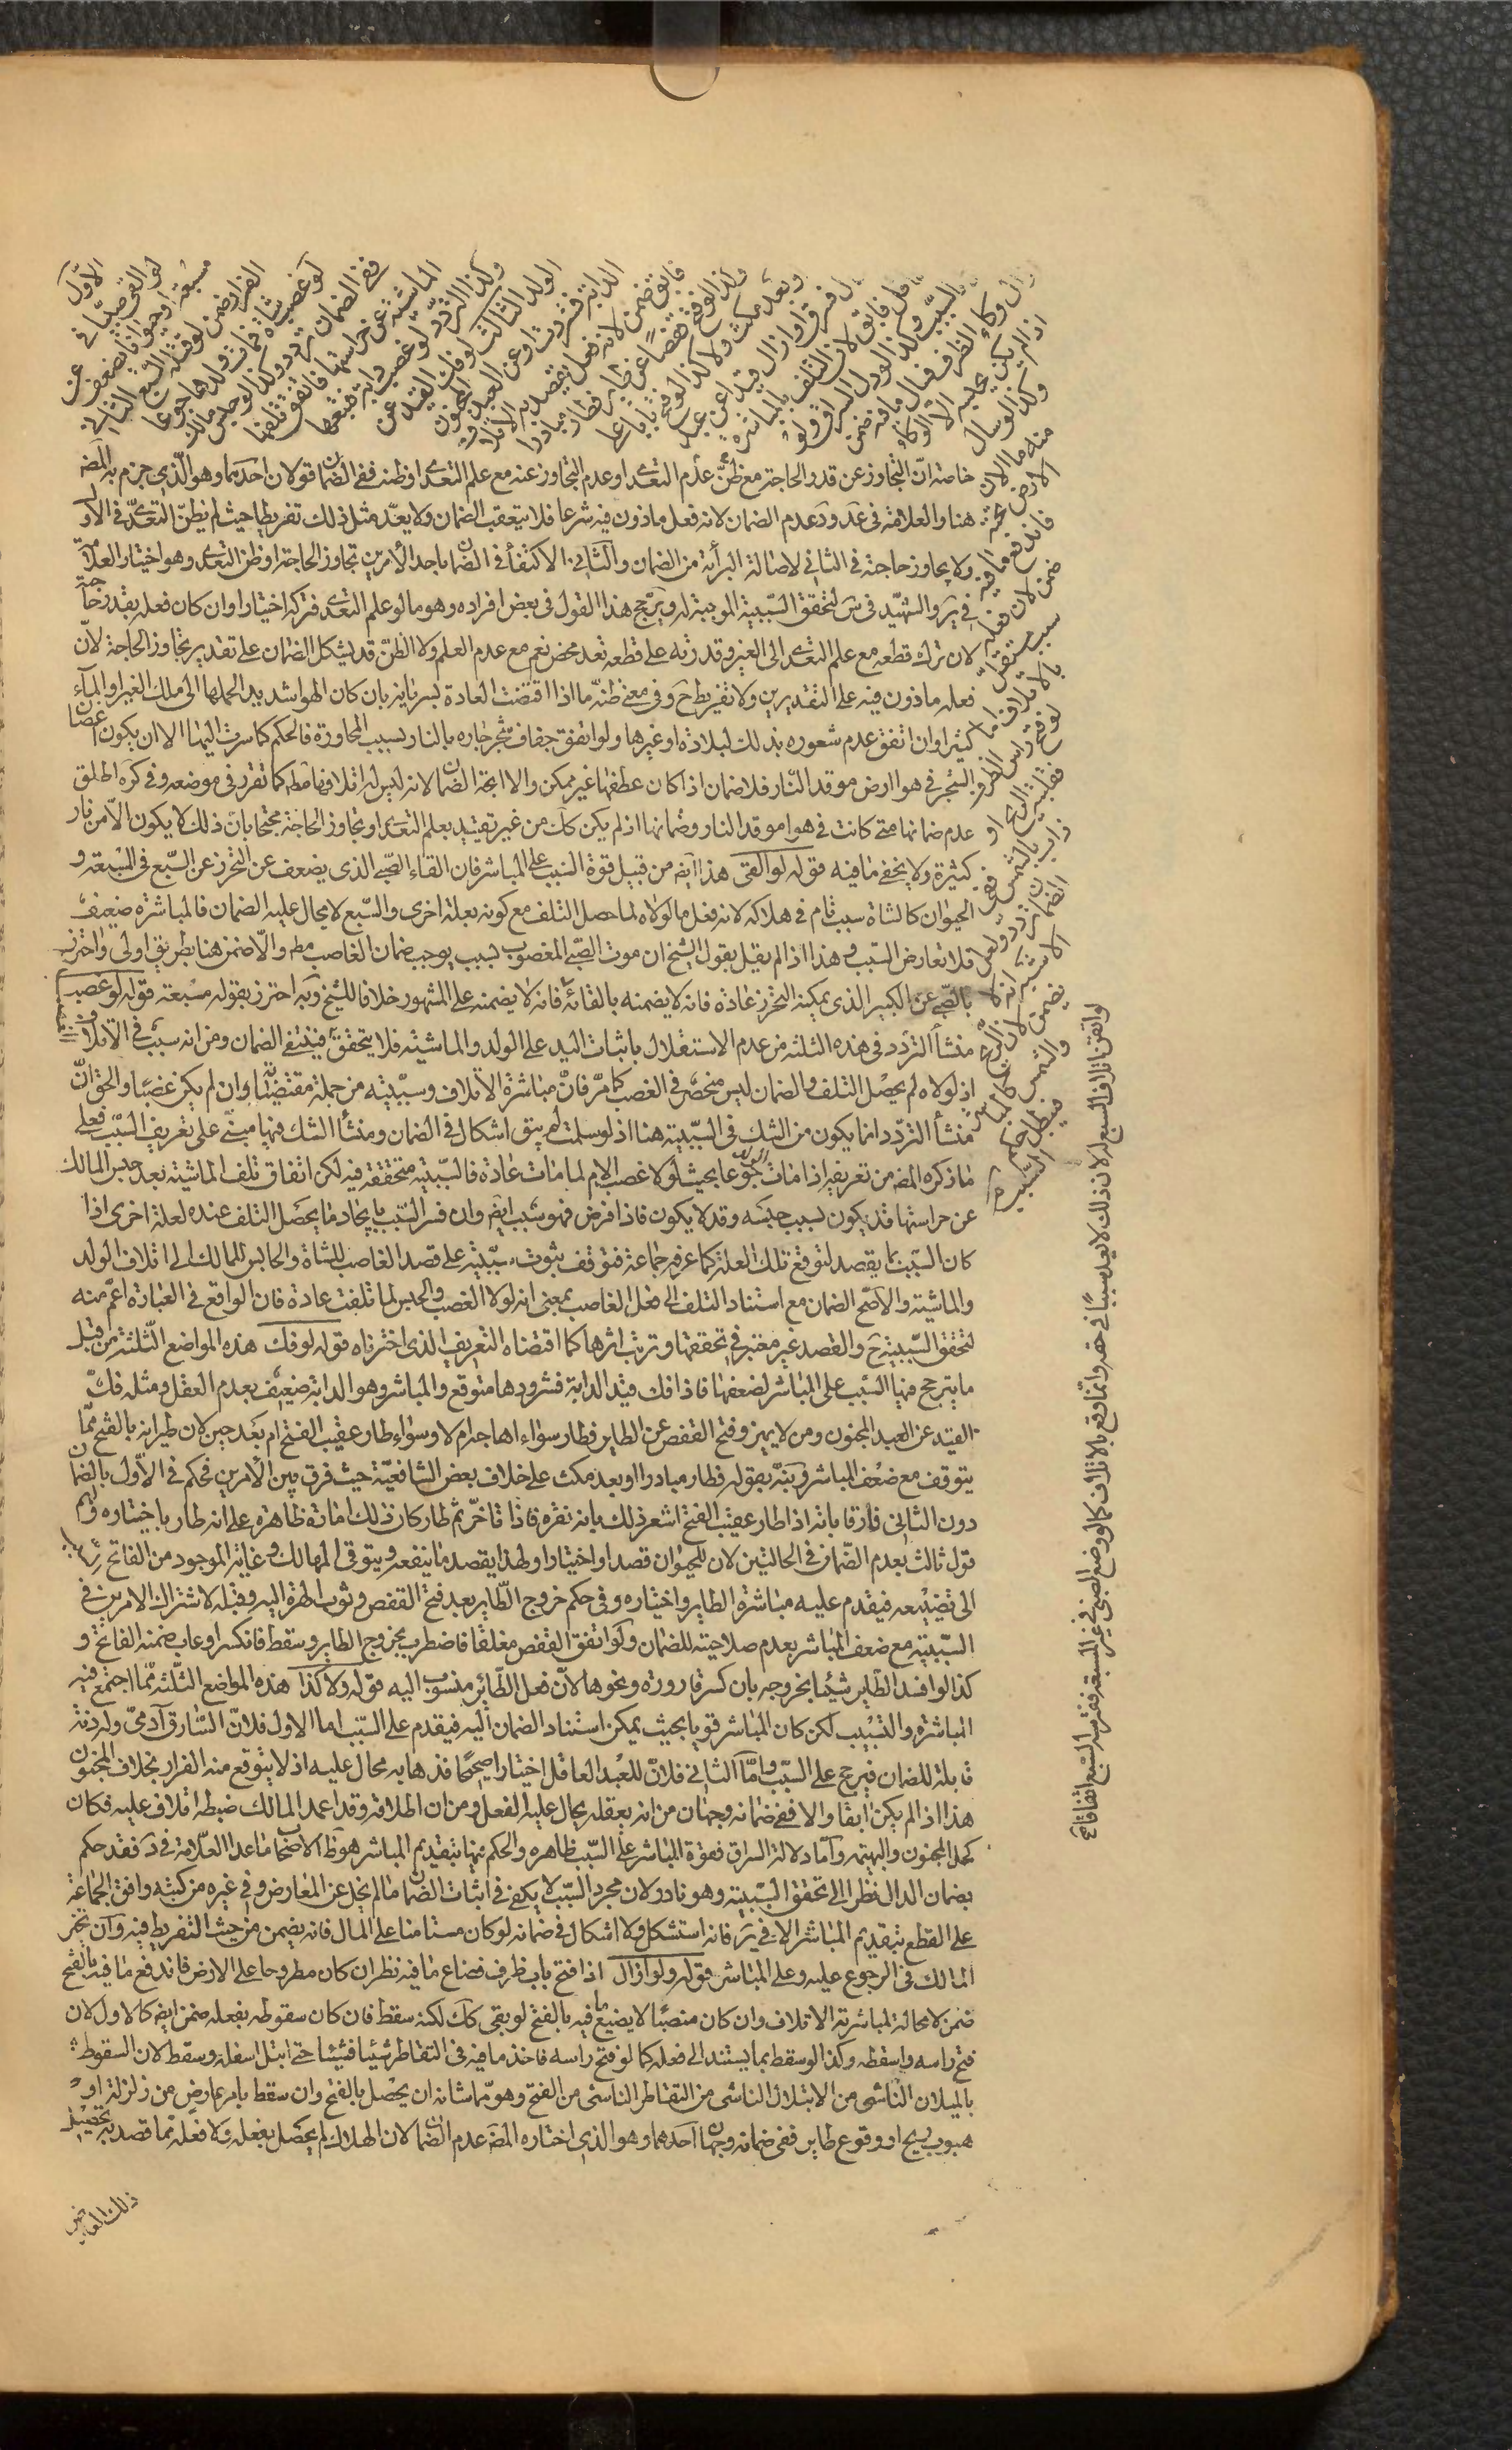 الأول
لو القى صبيا في
مسبعة او حيوانا يضعف عن
الفرار ضمن لو قتله السبع الثاني
لو غصب شاة فمات ولدها جوعا
ففي الضمان تردد وكذا لو حبس مالك
الماشية عن حراستها فاتفق تلفها
وكذا التردد لو غصب دابة فتبعها
الولد الثالث لو فك القيد عن
الدابة فشردت او عن العبد المجنون
فابق ضمن لانه فعل يقصد به الاتلاف
وكذا لو فتح قفصا عن طاير فطار مبادرا
او بعد مكث ولا كذا لو فتح بابا على
مال فسرق او ازال قيدا عن عبد
عاقل فابق لان التلف بالمباشرة
لا بالسبب وكذا لو دل السراق ولو
ازال وكاء الظرف فسال ما فيه ضمن
اذا لم يكن يحبسه الا الوكاء
وكذا لو سال
منه ما الان
الارض تحته
فاندفع ما فيه
ضمن لان فعله
سبب مستقل
بالاتلاف اما
لو فتح راس الظرف
فقلبته الريح او
ذاب بالشمس ففي
الضمان تردد ولعل
الاشبه انه لا
يضمن لان الريح
والشمس كالمباشر
فيبطل حكم
السبب
خاصة ان التجاوز عن قدر الحاجة مع ظن عدم التعدى او عدم التجاوز عنه مع علم التعدى او ظنه ففي الضمان قولان احدهما وهو الذى جزم به المصه
هنا والعلامة في عد ود عدم الضمان لانه فعل ماذون فيه شرعا فلا يتعقبه الضمان ولا يعد مثل ذلك تفريطا حيث لم يظن التعدى في الاول
ولا يجاوز حاجته في الثاني لاصالة البرأة من الضمان والثاني الاكتفأ في الضمان باحد الأمرين تجاوز الحاجة او ظن التعدى وهو اختيار العلامة
في ير والشهيد في س لتحقق السببية الموجبة له ويرجح هذا القول في بعض افراده وهو ما لو علم التعدى فتركه اختيارا وان كان فعله بقدر حاجته
لان ترك قطعه مع علم التعدى الى الغير وقدرته على قطعه تعد محض نعم مع عدم العلم ولا الظن قد يشكل الضمان على تقدير تجاوز الحاجة لان
فعله ماذون فيه على التقديرين ولا تفريط ح وفي معنى ظنه ما اذا اقتضت العادة بسرايته بان كان الهوا شديدا لحملها الى ملك الغير او الماء
كثيرا وان اتفق عدم شعوره بذلك لبلادة او غيرها ولو اتفق جفاف شجر جاره بالنار بسبب المجاورة فالحكم كما سرت اليها الا ان يكون اغصان
الشجر في هوا ارض موقد النار فلا ضمان اذا كان عطفها غير ممكن والا اتجه الضمان لانه ليس له اتلافها مطلقا كما تقرر في موضعه وفي كره اطلق
عدم ضمانها متى كانت في هوا موقد النار وضمانها اذا لم يكن كك من غير تقييد بعلم التعدى او تجاوز الحاجة محتجا بان ذلك لا يكون الا من نار
كثيرة ولا يخفى ما فيه قوله لو القى هذا ايض من قبيل قوة السبب على المباشر فان القاء الصبي الذى يضعف عن التحرز عن السبع في المسبعة و
الحيوان كالشاة سبب تام في هلاكه لانه فعل ما لولاه لما حصل التلف مع كونه بعلة اخرى والسبع لا يحال عليه الضمان فالمباشرة ضعيفة
فلا تعارض السبب هذا اذا لم يقل بقول الشيخ ان موت الصبي المغصوب بسبب يوجب ضمان الغاصب مط والا ضمن هنا بطريق اولى واحترز
بالصبي عن الكبير الذى يمكنه التحرز عادة فانه لا يضمنه بالقائه فانه لا يضمنه على المشهور خلافا للشيخ وبه احترز بقوله مسبعة قوله لو غصب
منشأ التردد في هذه الثلثة من عدم الاستقلال باثبات اليد على الولد والماشية فلا يتحقق فينتفى الضمان ومن انه سبب في الاتلاف
اذ لولاه لم يحصل التلف والضمان ليس منحصر في الغصب كما مر فان مباشرة الاتلاف وسببيته من جملة مقتضياته وان لم يكن غصبا والحق ان
منشأ التردد انما يكون من الشك في السببية هنا اذ لو سلمت لم يبق اشكال في الضمان ومنشأ الشك فيها مبني على تعريف السبب فعلى
ما ذكره المصه من تعريفه اذا مات الولد جوعا بحيث لولا غصب الام لما مات عادة فالسببية متحققة فيه لكن اتفاق تلف الماشية بعد حبس المالك
عن حراستها قد يكون بسبب حبسه وقد لا يكون فاذا فرض فهو سبب ايض وان فسر السبب بايجاد ما يحصل التلف عنده لعلة اخرى اذا
كان السبب مما يقصد لتوقع تلك العلة كما عرفه جماعة فتوقف ثبوت سببيته على قصد الغاصب للشاة والحابس للمالك الى اتلاف الولد
والماشية والاصح الضمان مع استناد التلف الى فعل الغاصب بمعنى انه لولا الغصب والحبس لما تلفت عادة فان الواقع في العبارة اعم منه
لتحقق السببية ح والقصد غير معتبر في تحققها وترتب اثرها كما اقتضاه التعريف الذى اخترناه قوله لو فك هذه المواضع الثلثة من قبيل
ما يترجح فيها السبب على المباشر لضعفها فاذا فك قيد الدابة فشرودها متوقع والمباشر وهو الدابة ضعيف بعدم العقل ومثله فك
القيد عن العبد المجنون ومن لا يميز وفتح القفص عن الطاير فطار سواء اهاجه ام لا وسواء طار عقيب الفتح ام بعد حين لان طيرانه بالفتح مما
يتوقف مع ضعف المباشر ونبه بقوله فطار مبادرا او بعد مكث على خلاف بعض الشافعية حيث فرق بين الأمرين فحكم في الأول بالضمان
دون الثاني فارقا بانه اذا طار عقيب الفتح اشعر ذلك بانه نفره فاذا تاخر ثم طار كان ذلك امارة ظاهرة على انه طار باختياره ولهم
قول ثالث بعدم الضمان في الحالتين لان للحيوان قصدا واختيارا ولهذا يقصد ما ينفعه ويتوقى المهالك وغاية الموجود من الفاتح
الى تضييعه فيقدم عليه مباشرة الطاير واختياره وفي حكم خروج الطاير بعد فتح القفص وثوب الهرة اليه وقتله لاشتراك الامرين في
السببية مع ضعف المباشر بعدم صلاحيته للضمان ولو اتفق القفص مغلقا فاضطرب بخروج الطاير وسقط فانكسر او عاب ضمنه الفاتح و
كذا لو افسد الطاير شيئا بخروجه بان كسر قارورة ونحوها لان فعل الطائر منسوب اليه قوله ولا كذا هذه المواضع الثلثة مما اجتمع فيه
المباشرة والتسبيب لكن كان المباشر قويا بحيث يمكن استناد الضمان اليه فيقدم على السبب اما الاول فلان السارق آدمي وله ذمة
قابلة للضمان فيرجح على السبب واما الثاني فلان للعبد العاقل اختيارا صحيحا فذهابه محال عليه اذ لا يتوقع منه الفرار بخلاف المجنون
هذا اذا لم يكن ابقا والا ففي ضمانه وجهان من انه بعقله يحال عليه الفعل ومن ان اطلاقه وقد اعمد المالك ضبطه اتلاف عليه فكان
كحل المجنون والبهيمة واما دلالة السراق فقوة المباشر على السبب ظاهره والحكم فيها بتقديم المباشر هو ظ الاصحاب ما عدا العلامة في د فقد حكم
بضمان الدال نظرا الى تحقق السببية وهو نادر لان مجرد السبب لا يكفى في اثبات الضمان ما لم يخل عن المعارض وفي غيره من كتبه وافق الجماعة
على القطع بتقديم المباشر الا في ير فانه استشكل ولا اشكال في ضمانه لو كان مستامنا على المال فانه يضمن من حيث التفريط فيه وان تخير
المالك في الرجوع عليه وعلى المباشر قوله ولو ازال اذا فتح باب ظرف فضاع ما فيه نظر ان كان مطروحا على الارض فاندفع ما فيه بالفتح
ضمن لا محالة لمباشرته الاتلاف وان كان منصبا لا يضيع ما فيه بالفتح لو بقى كك لكنه سقط فان كان سقوطه بفعله ضمن ايض كالاول لان
فتح راسه واسقطه وكذا لو سقط بما يستند الى فعله كما لو فتح راسه فاخذ ما فيه في التقاطر شيئا فشيئا حتى ابتل اسفله وسقط لان السقوط
بالميلان الناشى من الابتلال الناشى من التقاطر الناشى من الفتح وهو مما شانه ان يحصل بالفتح وان سقط بامر عارض من زلزلة او
هبوب ريح او وقوع طاير ففي ضمانه وجهان احدهما وهو الذى اختاره المصه عدم الضمان لان الهلاك لم يحصل بفعله ولا فعله مما قصد به تحصيل
ذلك العارض
لو اتفق تلاف السبع له لان ذلك لا يعد سببا في حقه وانما وقع بالاتلاف كما لو وضع الصبي في غير المسبعة فافترسه السبع اتفاقا